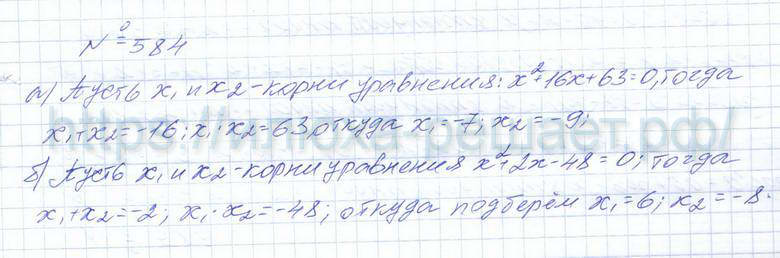 № 584
а) Пусть x₁ и x₂ - корни уравнения: x²+16x+63=0, тогда
x₁+x₂=-16; x₁·x₂=63, откуда x₁=-7; x₂=-9;
б) Пусть x₁ и x₂ - корни уравнения x²+2x-48=0; тогда
x₁+x₂=-2; x₁·x₂=-48; откуда подберём x₁=6; x₂=-8.